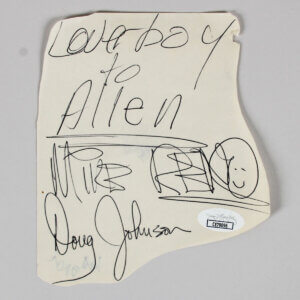 Loverboy
to
Allen
Mike Reno
Doug Johnson